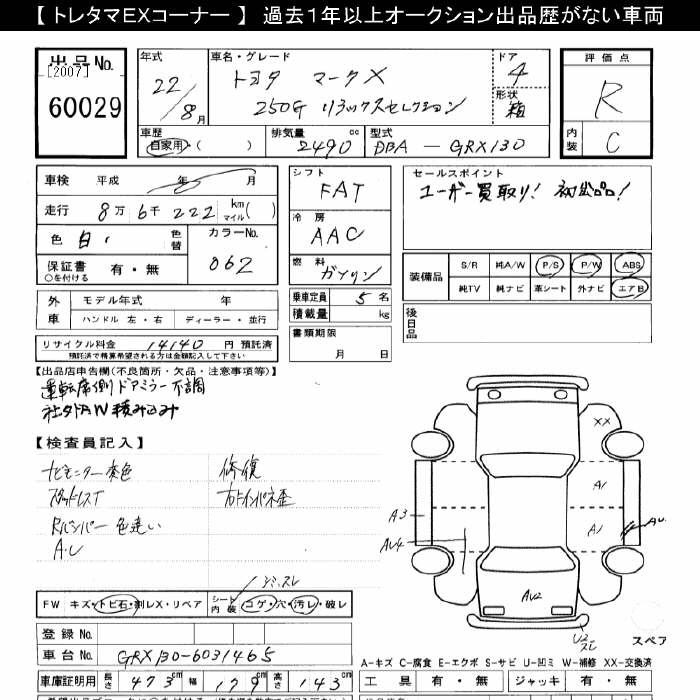 【 トレタマEXコーナー 】 過去1年以上オークション出品歴がない車両
出品No.
[2007]
60029
年式
22
8月
車名・グレード
トヨタ マークX
250G リラックスセレクション
ドア
4
形状
箱
評価点
R
内装
C
車歴
自家用・( )
排気量
2490 cc
型式
DBA - GRX130
車検 平成 年 月
走行 8万 6千 222 km マイル( )
色 白
色替
カラーNo.
062
保証書 有・無
○を付ける
シフト
FAT
冷房
AAC
燃料
ガソリン
乗車定員 5名
積載量 kg
セールスポイント
ユーザー買取り! 初出品!
装備品 S/R 純A/W P/S P/W ABS
純TV 純ナビ 革シート 外ナビ エアB
外車 モデル年式 年
ハンドル 左・右 ディーラー・並行
リサイクル料金 14140 円 預託済
預託済で精算希望される方は金額明記して下さい
書類期限
月 日
後日品
【出品店申告欄(不良箇所・欠品・注意事項等)】
運転席側ドアミラー不調
社外AW積み込み
【検査員記入】
ナビモニター変色
修復
Rバンパー色違い
A.U
XX
A1
A1
A3
AU4
AU2
スレ
スペア
シミ.スレ
FW キズ・トビ石・割レX・リペア
シート内装 コゲ・穴・汚レ・破レ
登録No.
車台No. GRX130-6031465
車庫証明用 長さ 473cm 幅 179cm 高さ 143cm
A-キズ C-腐食 E-エクボ S-サビ U-凹ミ W-補修 XX-交換済
工具 有・無 ジャッキ 有・無